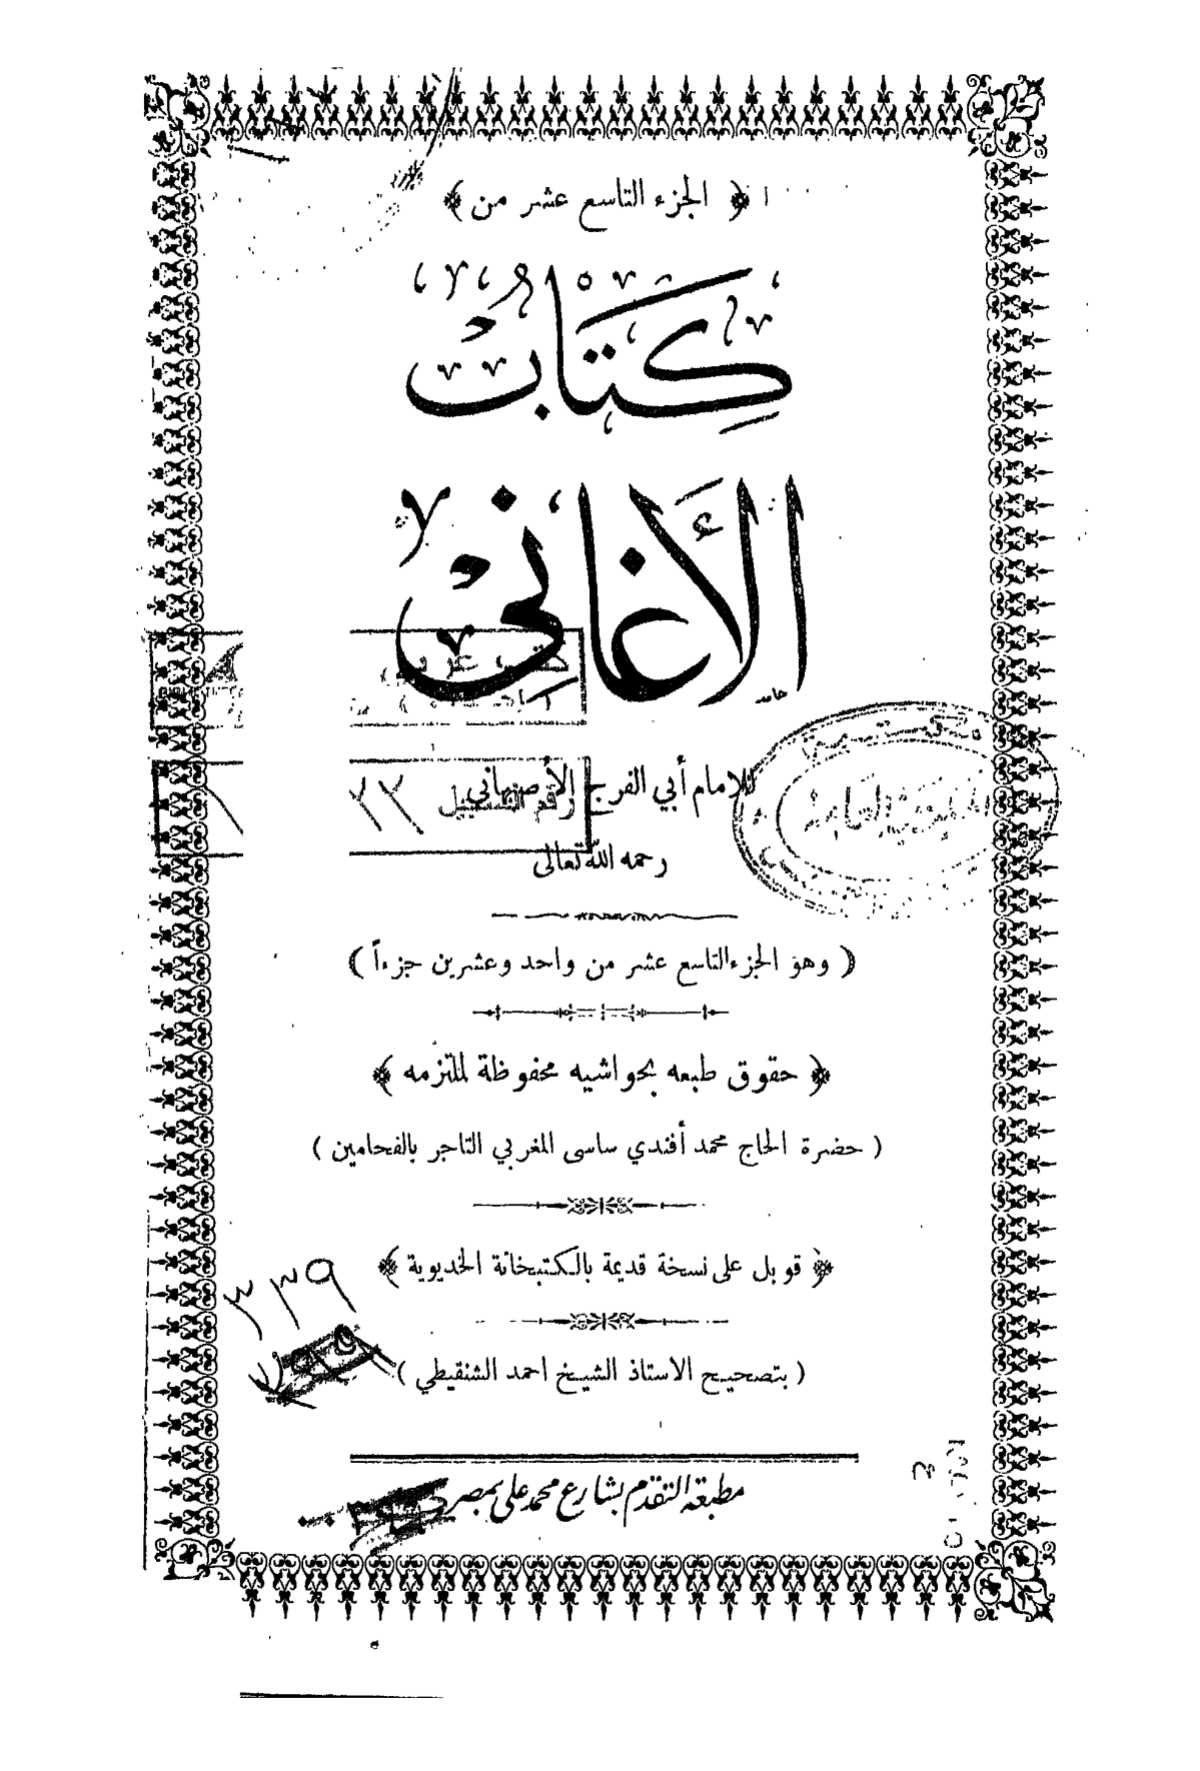 ﴿ الجزء التاسع عشر من ﴾
كِتَابُ
الأَغَانِي
للامام أبي الفرج الأصبهاني
رحمه الله تعالى
( وهو الجزء التاسع عشر من واحد وعشرين جزءاً )
﴿ حقوق طبعه بحواشيه محفوظة لملتزمه ﴾
( حضرة الحاج محمد أفندي ساسى المغربي التاجر بالفحامين )
﴿ قوبل على نسخة قديمة بالكتبخانة الخديوية ﴾
٣٣٩
( بتصحيح الاستاذ الشيخ احمد الشنقيطي )
مطبعة التقدم بشارع محمد على بمصر